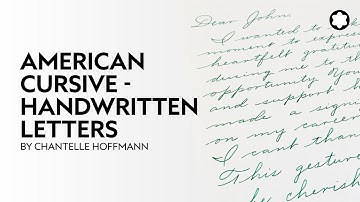 AMERICAN
CURSIVE -
HANDWRITTEN
LETTERS
BY CHANTELLE HOFFMANN
Dear John,
I wanted to
moment to express
heartfelt gratitude
during me to th
opportunity You
and support h
made a signi
on my career
I cant than
This gesture
be cherish